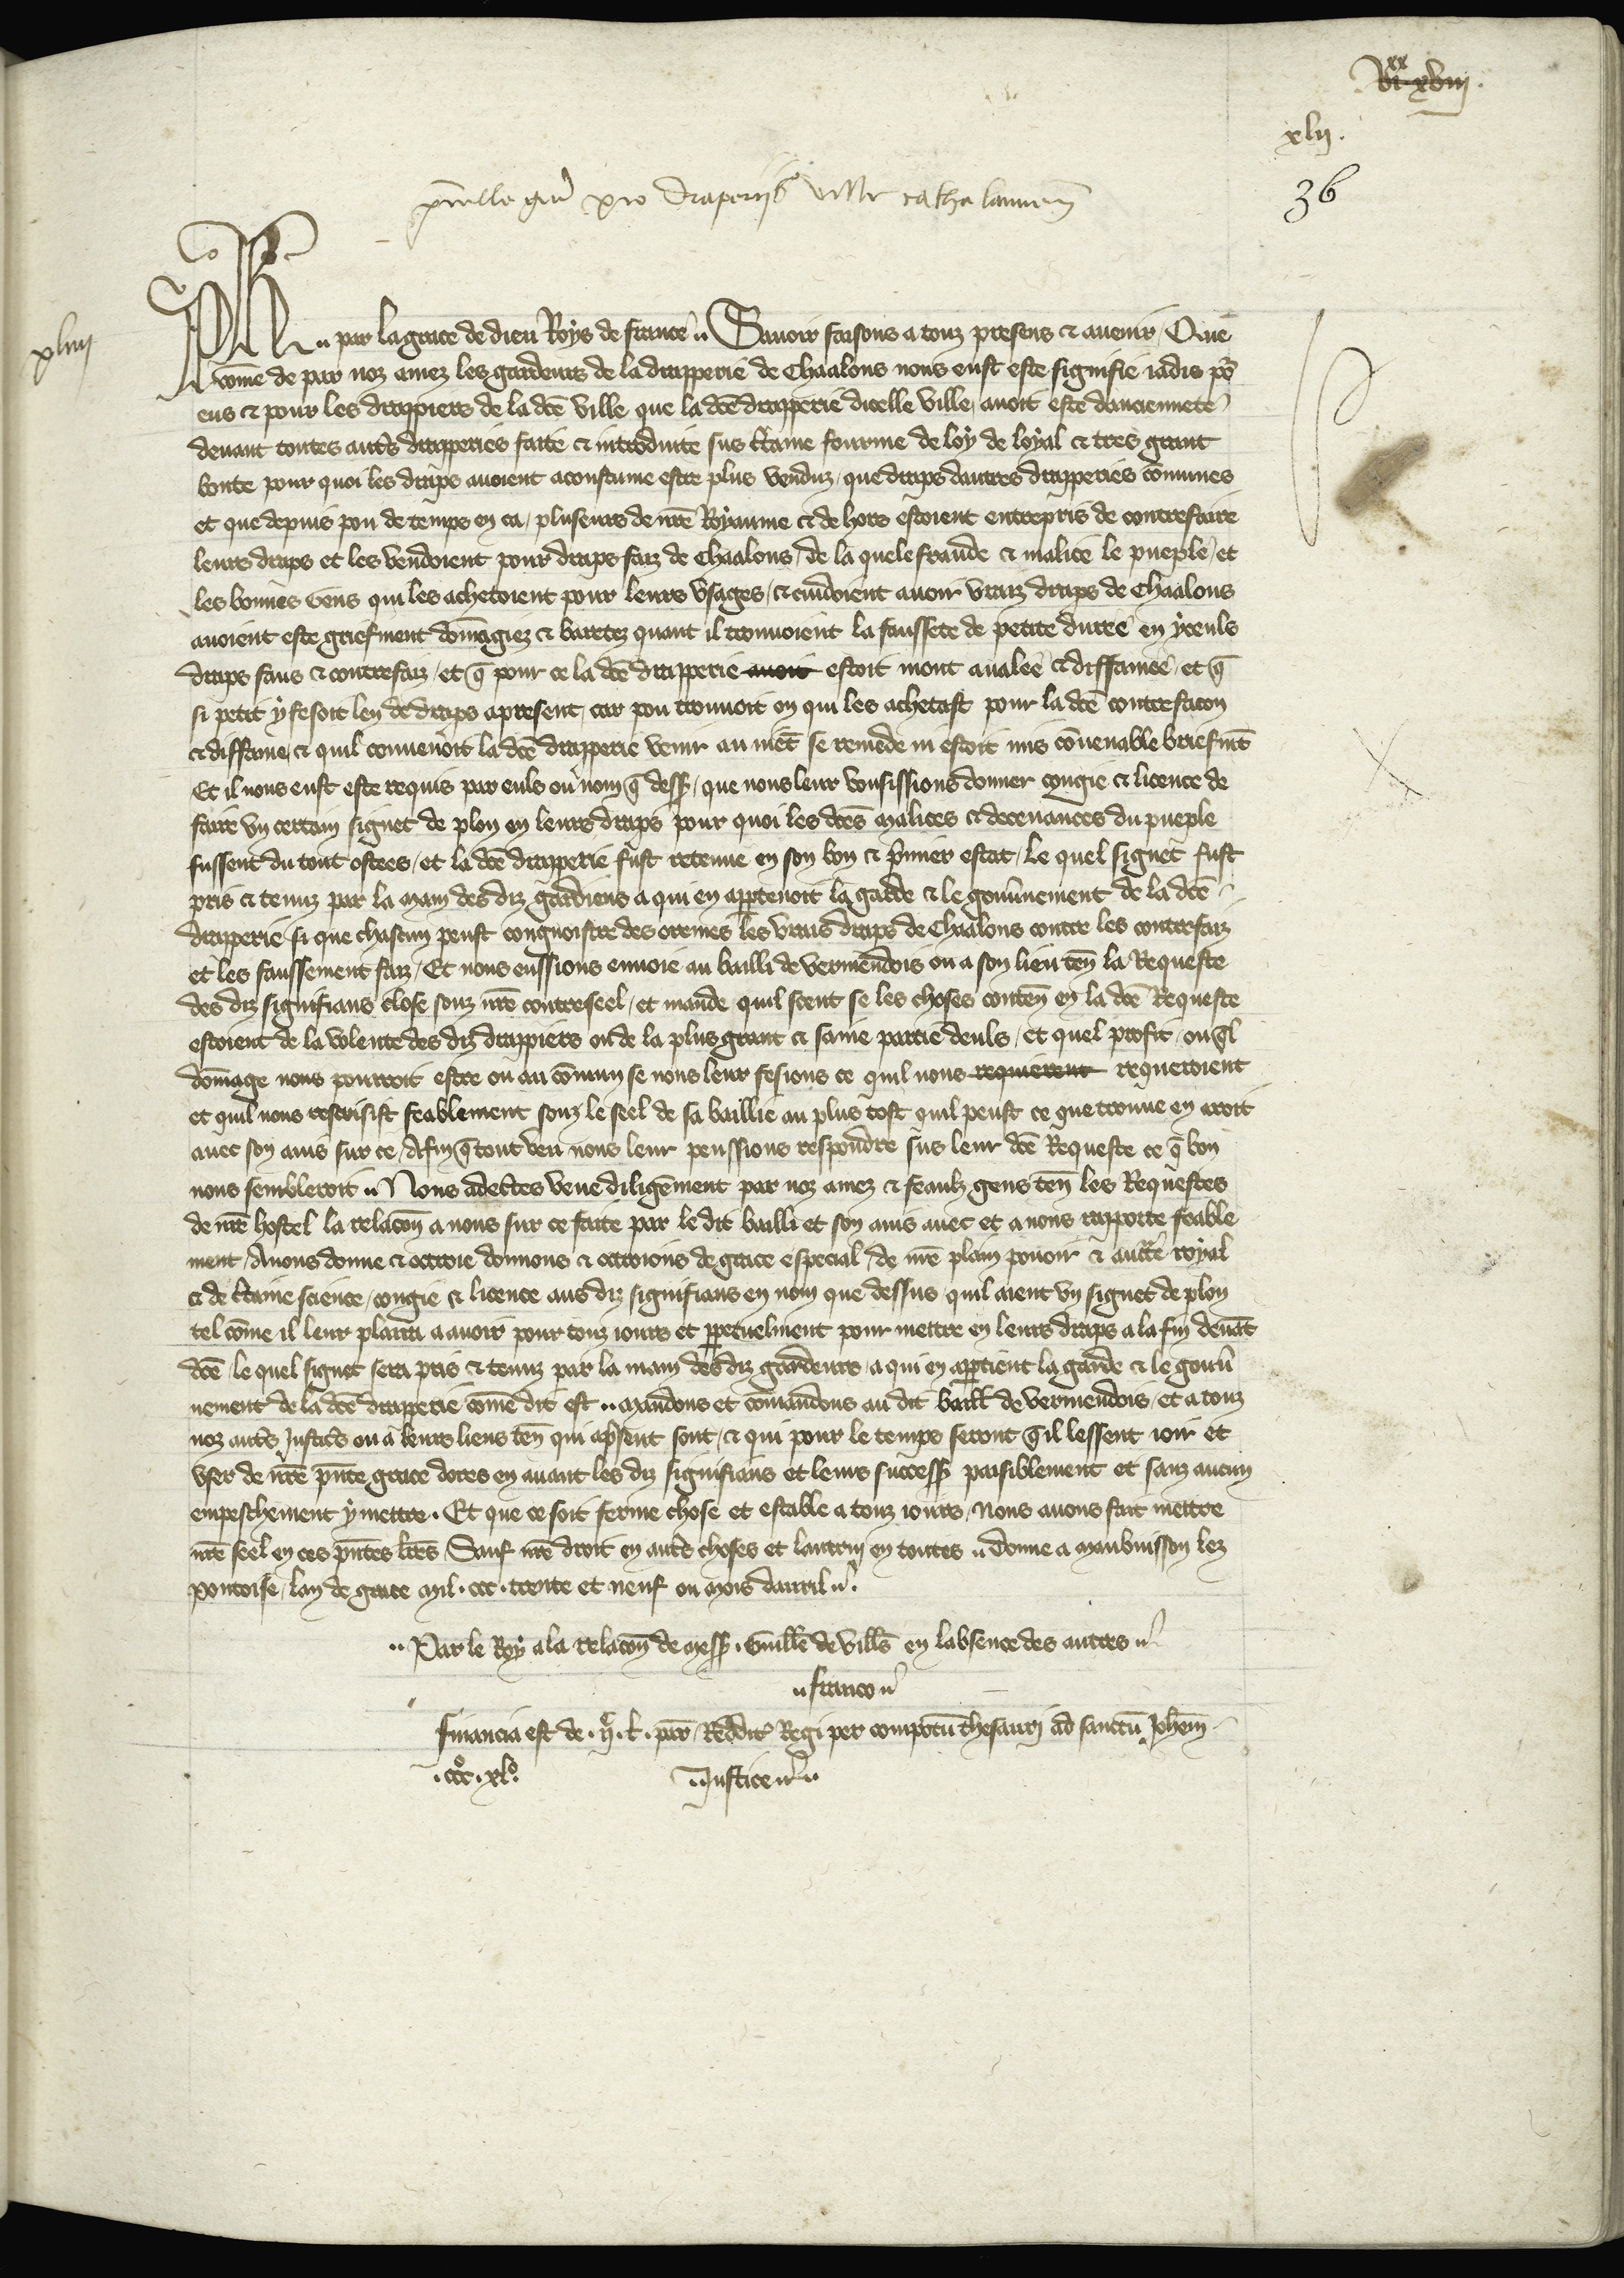 vi.xx xviij.
xlij.
36
p̃uilegiũ pro draperijs ville cathalaunen̄
xliiij
Ph̃ par la grace de dieu Roys de france Sauoir faisons a touz presens et auenir Que
cõme de par noz amez les gardeurs de la drapperie de Chaalons nous eust este signifie iadis po᷒
eus et pour les drappiers de la dc̃e ville que la dc̃e drapperie dicelle ville auoit este dancienneté
deuant toutes aut̃s drapperies faite et introduite sus c̃taine fourme de loy de loyal et tres grant
bonte pour quoi les draps auoient acoustume estre plus venduz que draps dautres drapperies cõmunes
et que depuis pou de temps en ca pluseurs de nr̃e Royaume et de hors estoient entrepris de contrefaire
leurs draps et les vendoient pour draps faiz de Chaalons de la quele fraude et malice le pueple et
les bonnes gens qui les achetoient pour leurs vsages et cuidoient auoir vraiz draps de Chaalons
auoient este griefment dõmagiez et baretez quant il trouuoient la faussete de petite duree en yceuls
draps faus et contrefaiz et q̃ pour ce la dc̃e drapperie auoit estoit mout aualee et diffamee et q̃
si petit y fesoit len de draps apresent car pou trouuoit on qui les achetast pour la dc̃e contrefacon
et diffame et quil conuenoit la dc̃e drapperie venir au niẽt se remede ni estoit mis cõuenable briefmẽt
Et il nous eust este requis par euls ou nom q̃ dess᷒ que nous leur vousissions donner congie et licence de
faire vn certain signet de plon en leurs draps pour quoi les dc̃es malices et deceuances du pueple
fussent du tout ostees et la dc̃e drapperie fust retenue en son bon et p̃mier estat le quel signet fust
pris et tenuz par la main des diz gardiens a qui en app̱tenoit la garde et le gouũnement de la dc̃e
drapperie si que chascun peust congnoistre des oremes les vrais draps de Chaalons contre les contrefaiz
et les faussement faiz Et nous eussions enuoie au bailli de vermendois ou a son lieu teñ la Requeste
des diz signifians close souz nr̃e contreseel et mande quil sceut se les choses conteñ en la dc̃e Requeste
estoient de la volente des diz drappiers ou de la plus grant et saine partie deuls et quel profit ou q̃l
dõmage nous pourroit estre ou au cõmun se nous leur fesions ce quil nous requierent requeroient
et quil nous rescrisist feablement souz le seel de sa baillie au plus tost quil peust ce que trouue en aroit
auec son auis sur ce Afin q̃ tout veu nous leur peussions respondre sus leur dc̃e Requeste ce q̃ bon
nous sembleroit Nous adecertes veue diligẽment par noz amez et feaulz gens teñ les Requestes
de nr̃e hostel la relacõn a nous sur ce faite par le dit bailli et son auis auec et a nous rapporte feable
ment Auons donne et ottroie donnons et ottroions de grace especial de nr̃e plain pouoir et auct̃e royal
et de c̃taine science congie et licence aus diz signifians en nom que dessus quil aient vn signet de plon
tel cõme il leur plaira a auoir pour touz iours et ꝑpetuelment pour mettre en leurs draps a la fin deuãt
dc̃e le quel signet sera pris et tenuz par la main des diz gardeurs a qui en app̱tient la garde et le gouũ
nement de la dc̃e drapperie cõme dit est Mandons et cõmandons au dit baill̃ de vermendois et a touz
noz aut̃s Justic̃s ou a leurs lieus teñ qui ap̃sent sont et qui pour le temps seront q̃il lessent ioir et
vser de nr̃e p̃nte grace dores en auant les diz signifians et leurs success᷒ paisiblement et sanz aucun
empeschement y mettre. Et que ce soit ferme chose et estable a touz iours Nous auons fait mettre
nr̃e seel en ces p̃ntes lr̃es Sauf nr̃e droit en aut̃s choses et lautrui en toutes Donne a Maubuisson lez
pontoise lan de grace Mil. ccc. trente et neuf ou mois dauril.
Par le Roy a la relacõn de mess᷒. Guill̃e de vill̃s en labsence des autres
franco
Financia est de . l̃. par̃ Reddit᷒ Regi per compotũ thesauri ad sanctũ Joh̃em
.ccc̊.xl̊. Justice